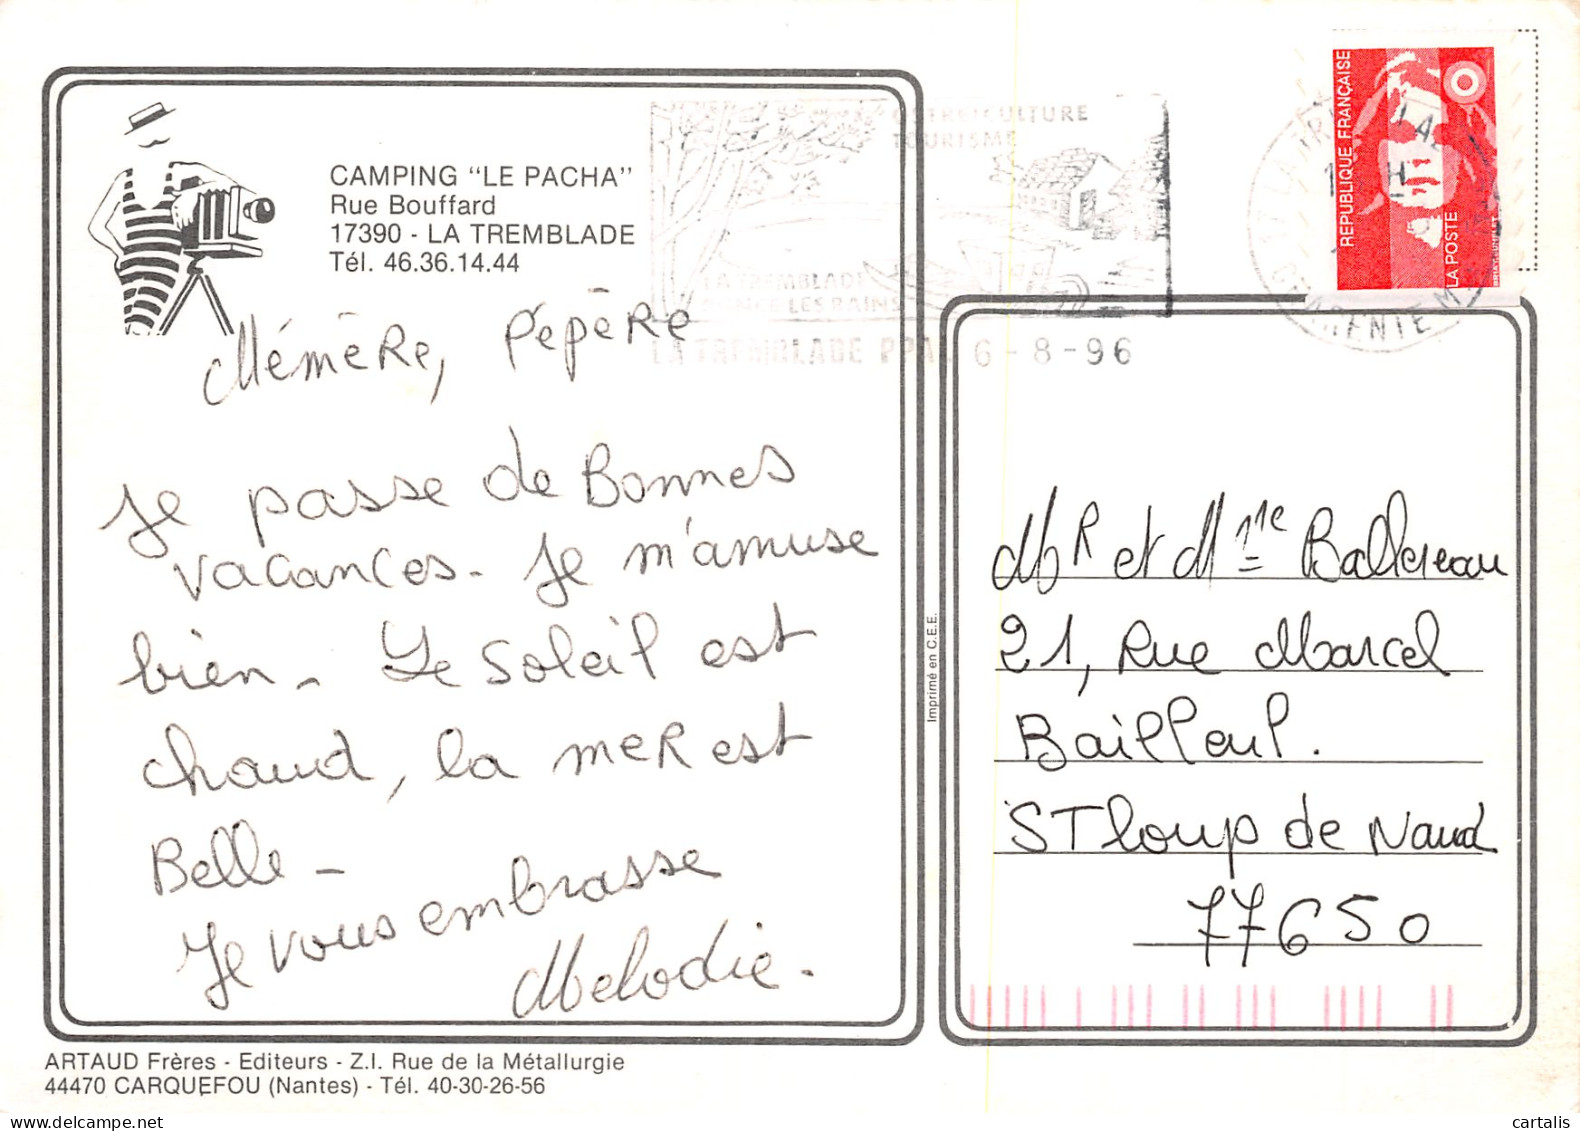 CAMPING "LE PACHA"
Rue Bouffard
17390 - LA TREMBLADE
Tél. 46.36.14.44
OSTREICULTURE
TOURISME
LA TREMBLADE
RONCE LES BAINS
LA TREMBLADE PPAL 6 - 8 - 96
RÉPUBLIQUE FRANÇAISE
LA POSTE
Mémère, Pépère
Je passe de Bonnes
vacances - Je m'amuse
bien - Le soleil est
chaud, la mer est
Belle -
Je vous embrasse
Melodie.
Imprimé en C.E.E.
Mr et M Ballereau
21, Rue Marcel
Bailleul.
ST loup de Naud
77650
ARTAUD Frères - Editeurs - Z.I. Rue de la Métallurgie
44470 CARQUEFOU (Nantes) - Tél. 40-30-26-56
cartalis